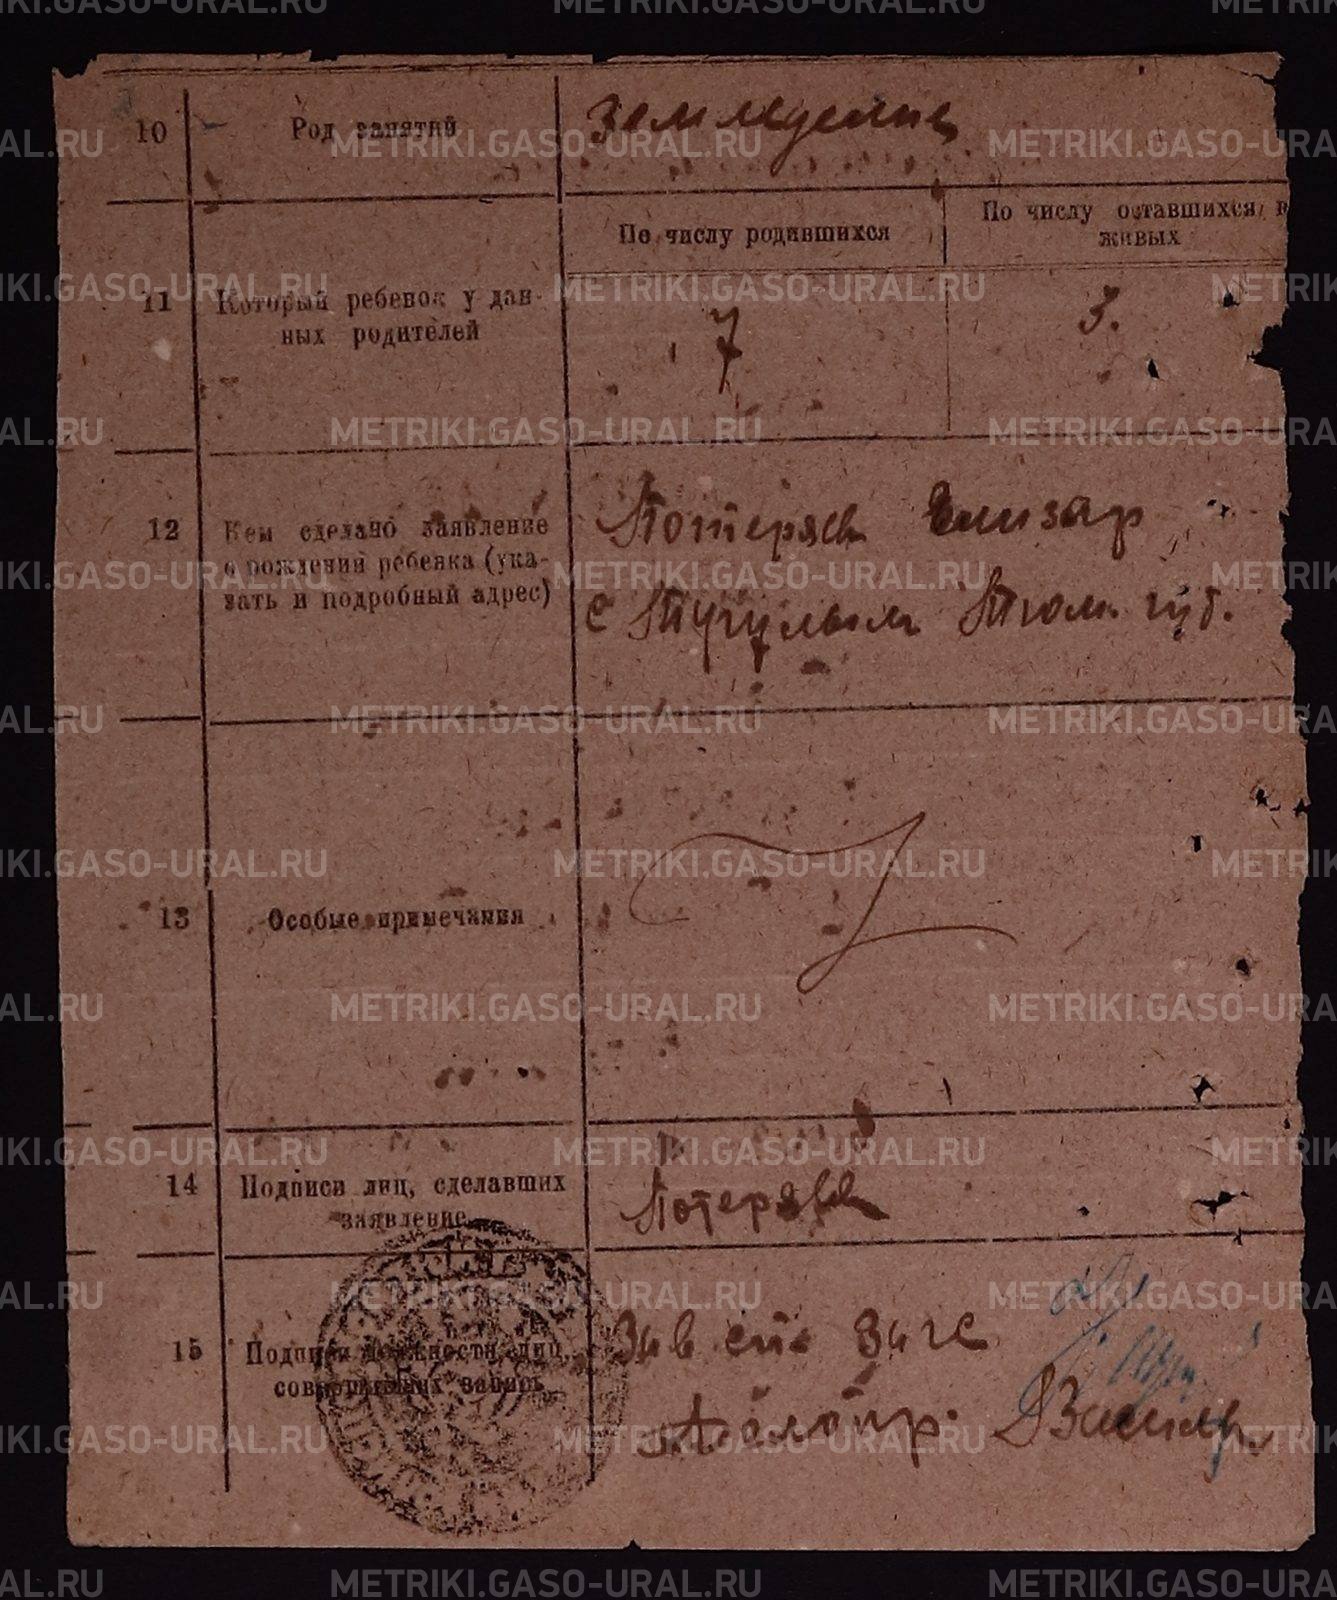 10 Род занятий земледелие
По числу родившихся
По числу оставшихся в живых
11 Который ребенок у дан-
ных родителей
7
3.
12 Кем сделано заявление
о рождении ребенка (ука-
зать и подробный адрес)
Потеряев Елизар
с Тугулым Тюм. губ.
13 Особые примечания
14 Подписи лиц, сделавших
заявление
Потеряев
15 Подписи должностн. лиц,
совершивших запись
Зав загс
Делопр.
METRIKI.GASO-URAL.RU